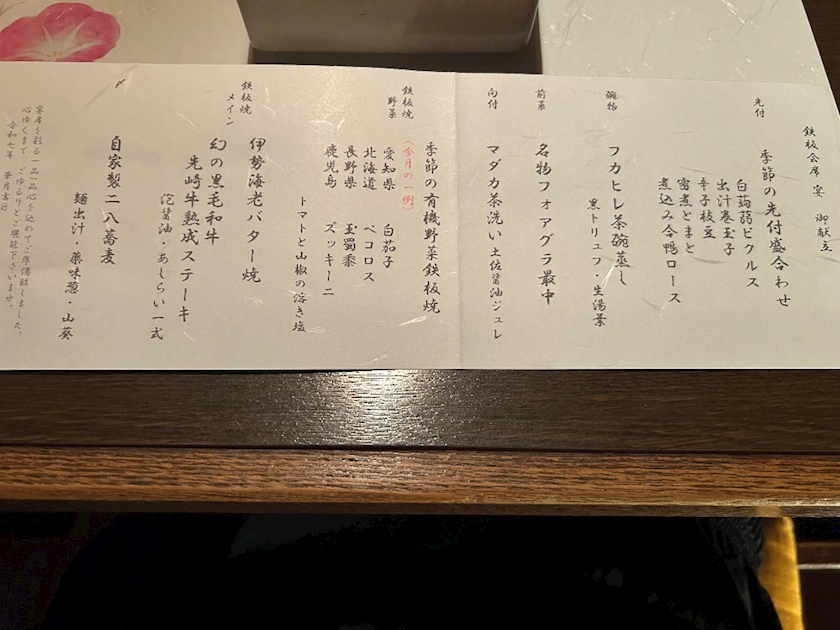 鉄板会席 宴 御献立
先付
季節の先付盛合わせ
白蒟蒻ピクルス
出汁巻玉子
辛子枝豆
蜜煮とまと
煮込み合鴨ロース
碗物
フカヒレ茶碗蒸し
黒トリュフ・生湯葉
前菜
名物フォアグラ最中
向付
マダカ茶洗い 土佐醤油ジュレ
鉄板焼
野菜
季節の有機野菜鉄板焼
(今月の一例)
愛知県 白茄子
北海道 ペコロス
長野県 玉蜀黍
鹿児島 ズッキーニ
トマトと山椒の溶き塩
鉄板焼
メイン
伊勢海老バター焼
幻の黒毛和牛
先崎牛熟成ステーキ
泡醤油・あしらい一式
〆
自家製二八蕎麦
麺出汁・薬味葱・山葵
宴席を彩る一品一品心を込めてご準備致しました。
心ゆくまで、ごゆるりとご堪能下さいませ。
令和七年 葉月吉日